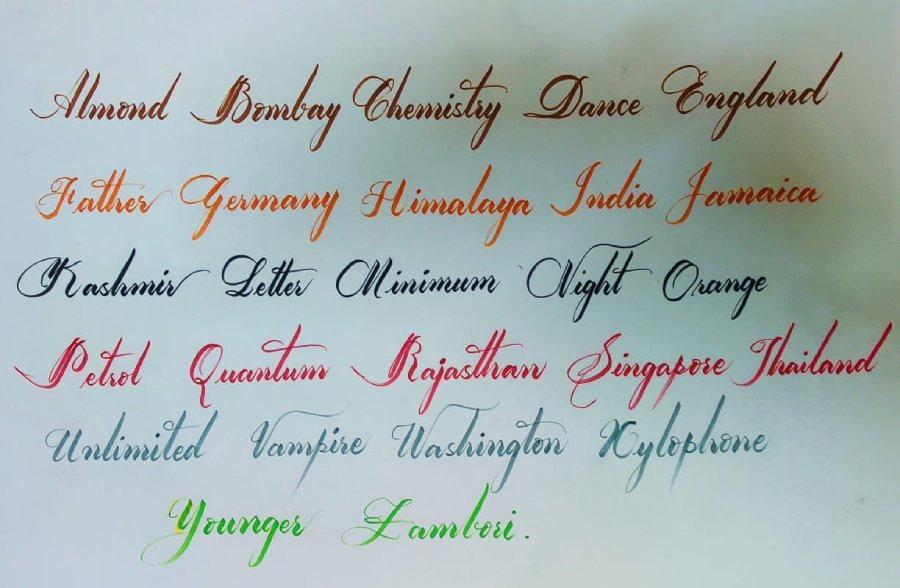 Almond Bombay Chemistry Dance England
Father Germany Himalaya India Jamaica
Kashmir Letter Minimum Night Orange
Petrol Quantum Rajasthan Singapore Thailand
Unlimited Vampire Washington Xylophone
Younger Zambori.